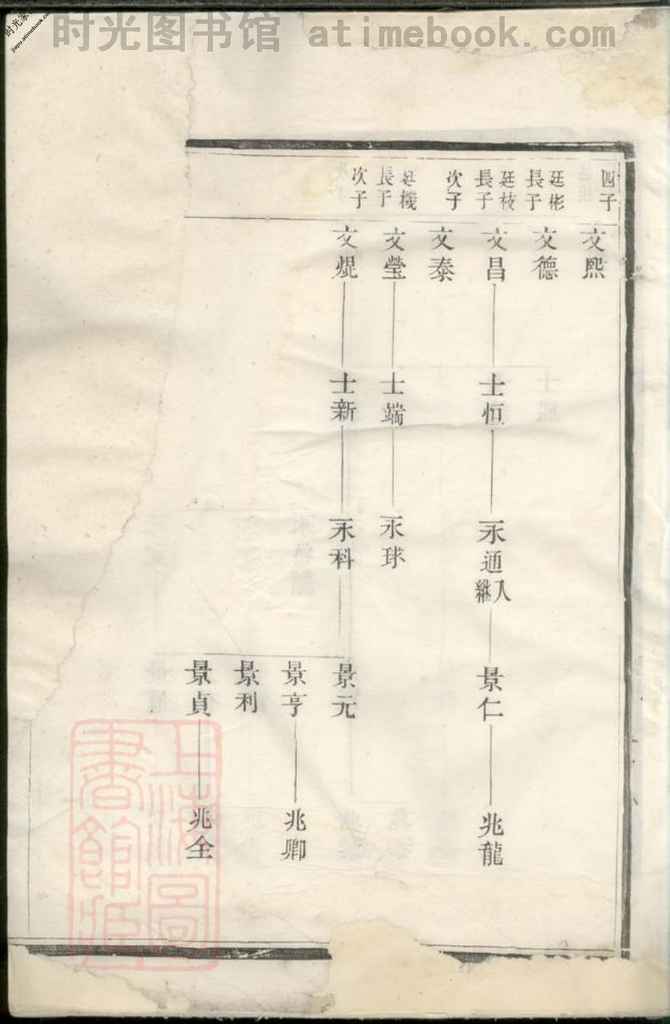 时光图书馆 atimebook.com
四子
文熙
廷彬
長子
文德
廷枝
長子
文昌
士恒
永通
入繼
景仁
兆龍
次子
文泰
廷機
長子
文瑩
士端
永球
次子
文焜
士新
永科
景元
景亨
兆卿
景利
景貞
兆全
上海圖
書館藏